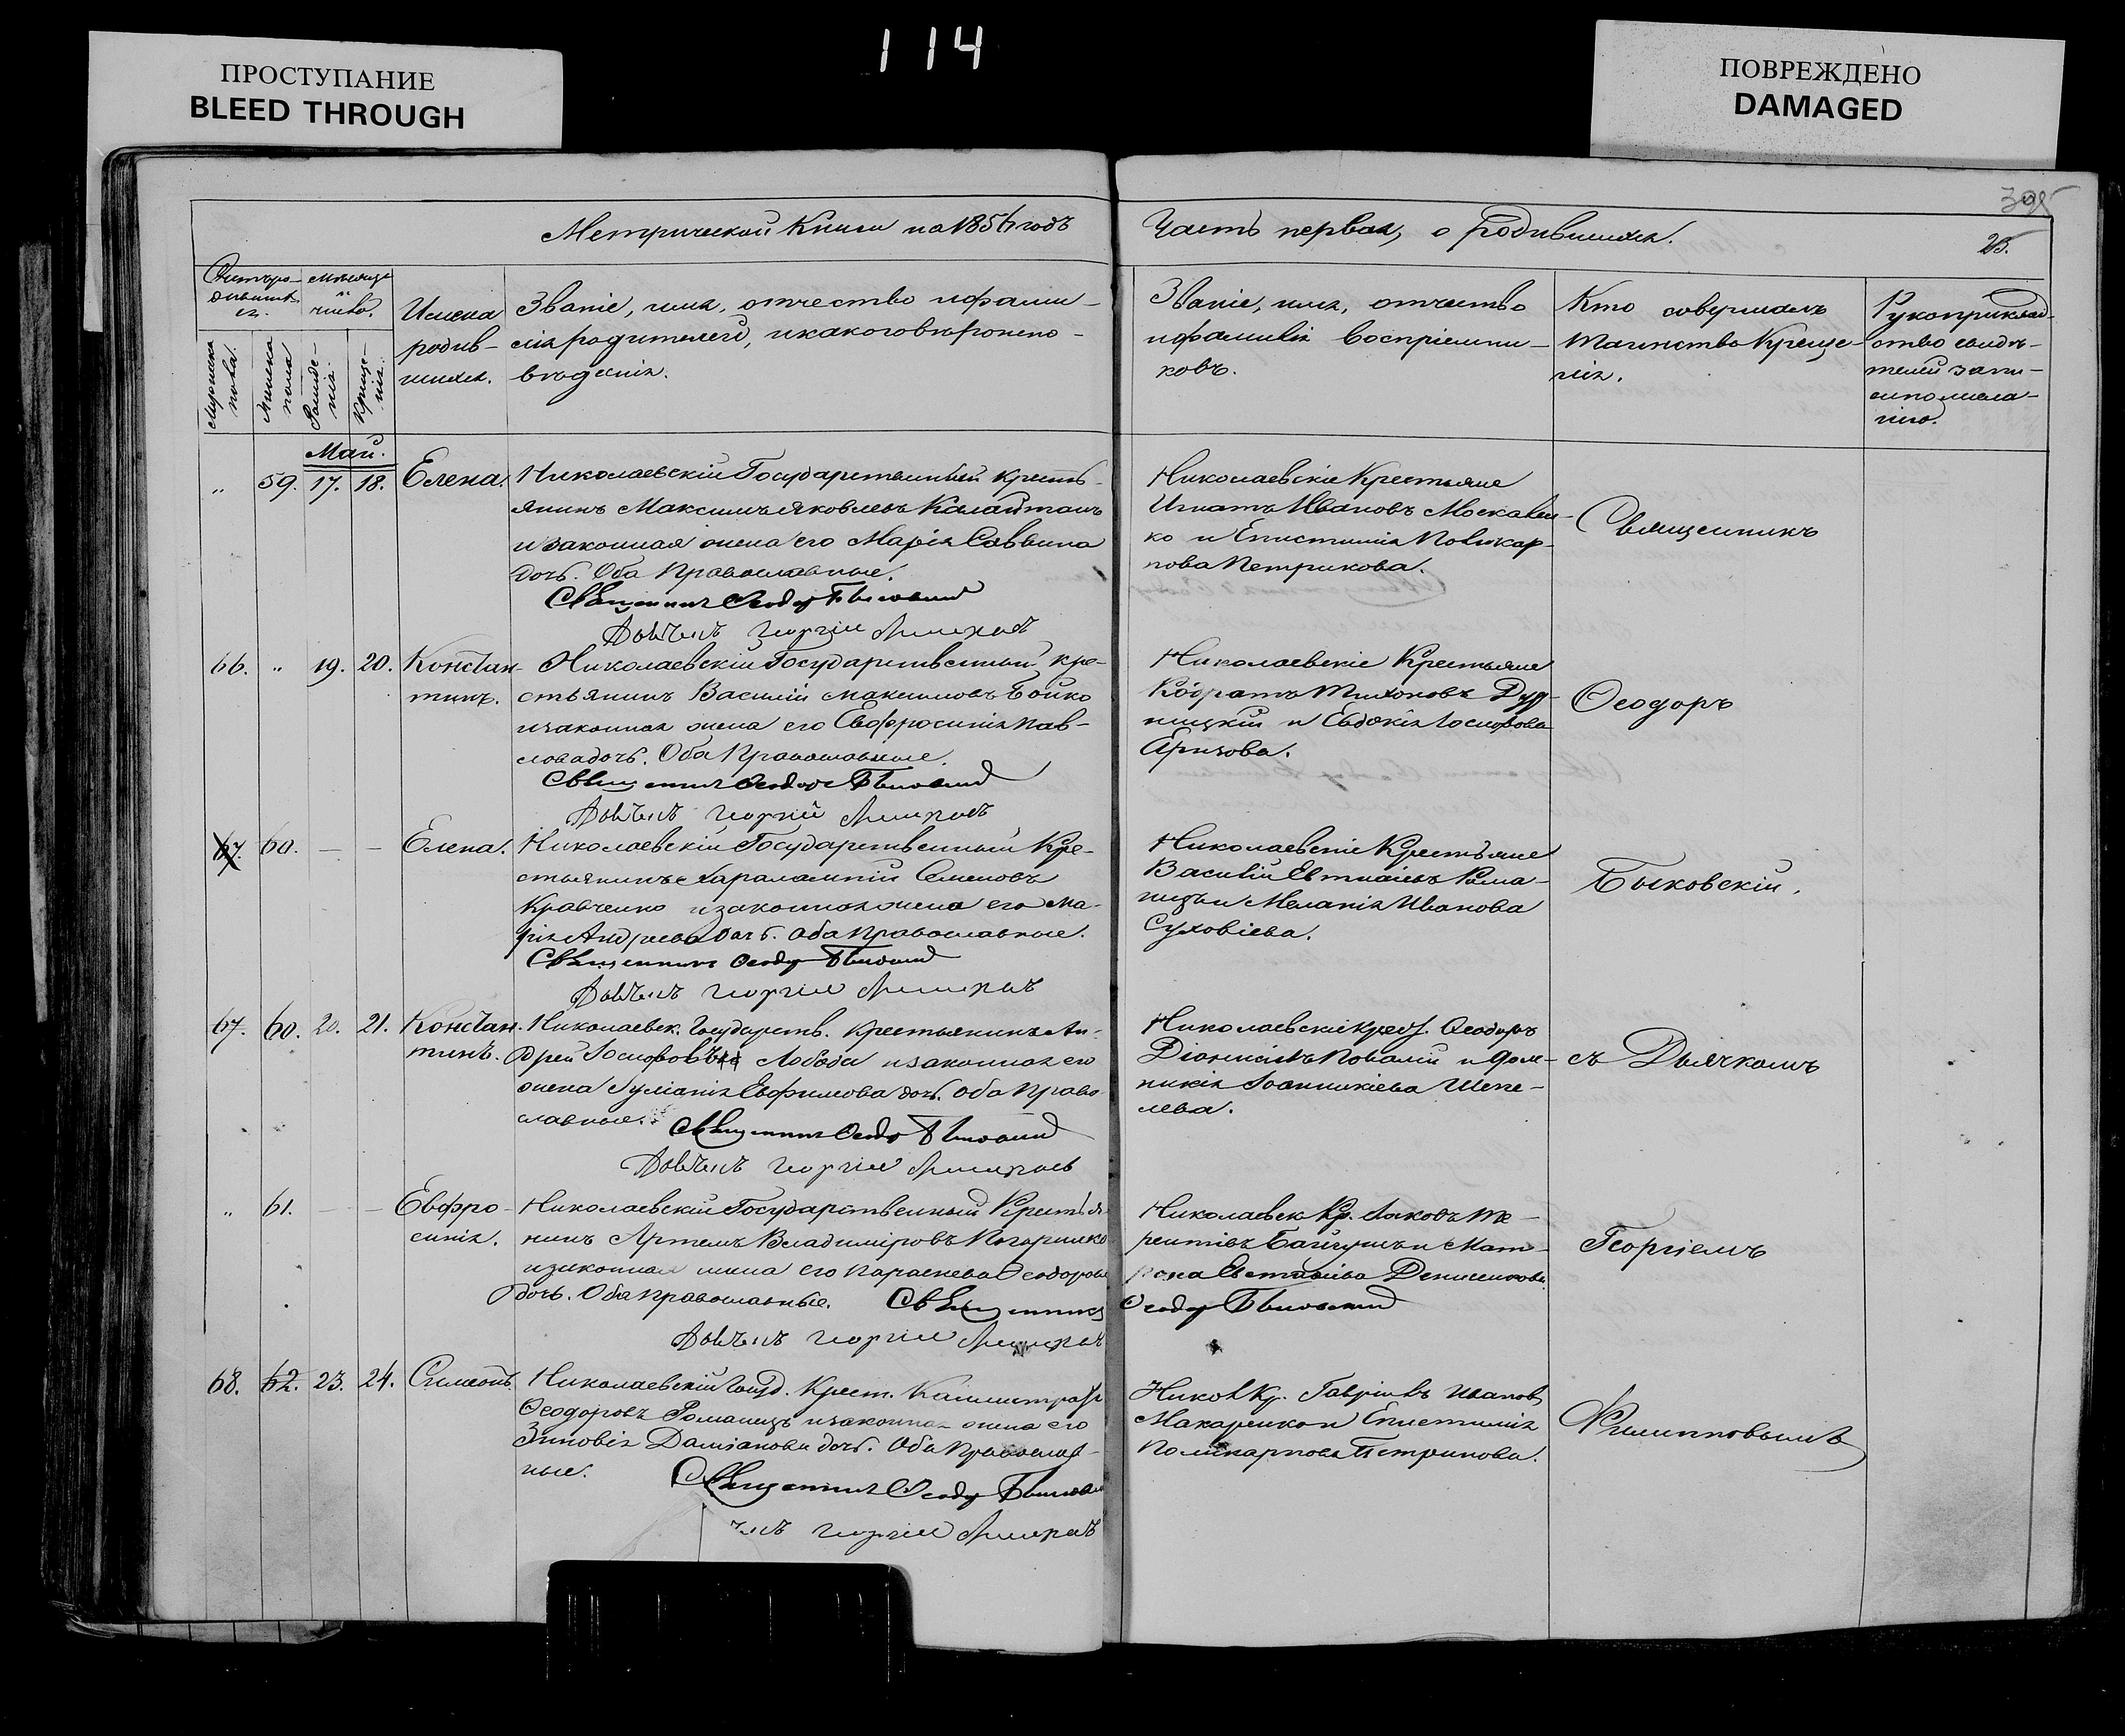 ПРОСТУПАНИЕ
BLEED THROUGH
114
ПОВРЕЖДЕНО
DAMAGED
395
Метрической Книги на 1856 годъ
Часть первая, о родившихся.
25.
Счетъ ро-
дивших-
ся.
Мѣсяцъ
и
число.
Мужеска
пола.
Женска
пола
Рожде-
нія.
Креще-
нія.
Имена
родив-
шихся.
Званіе, имя, отчество и фами-
лія родителей, и какого вѣроиспо-
вѣданія.
Званіе, имя, отчество
и фамилія воспріемни-
ковъ.
Кто совершалъ
таинство Креще-
нія.
Рукоприклад-
ство свидѣ-
телей запи-
си по жела-
нію.
Май.
„ 59. 17. 18. Елена.
Николаевскій Государственный кресть-
янинъ Максимъ Яковлевъ
и законная жена его Марія Саввина
дочь. Оба Православные.
Священникъ Ѳеодоръ Быковскій
Георгій
Николаевскіе Крестьяне
Игнатъ Ивановъ Москален-
ко и Епистимія Поликар-
пова Петрикова.
Священникъ
66. „ 19. 20. Констан-
тинъ.
Николаевскій Государственный кре-
стьянинъ Василій Максимовъ Бойко
и законная жена его Евфросинія Пав-
лова дочь. Оба Православные.
Священникъ Ѳеодоръ Быковскій
Георгій
Николаевскіе Крестьяне
Кодратъ Тихоновъ Дуд-
ницкій и Евдокія Іосифова
Ѳеодоръ
67. 60. — — Елена.
Николаевскій Государственный Кре-
стьянинъ Харалампій Семеновъ
Кравченко и законная жена его Ма-
рія Андреева дочь. Оба Православные.
Священникъ Ѳеодоръ Быковскій
Георгій
Николаевскіе Крестьяне
Василій Рома-
нецъ и Меланія Иванова
Суховіева.
Быковскій.
67. 60. 20. 21. Констан-
тинъ.
Николаевск. Государств. Крестьянинъ Ан-
дрей Іосифовъ Лобода и законная его
жена Іуліанія Евфимова дочь. Оба Право-
славные.
Священникъ Ѳеодоръ Быковскій
Георгій
Николаевскіе Крест. Ѳеодоръ
Діонисіевъ и Дом-
никія Іоанникіева Шепе-
лева.
съ Дьячкомъ
„ 61. — — Евфро-
синія.
Николаевскій Государственный Крестья-
нинъ Артемъ Владиміровъ Погорилко
и законная жена его Параскева Ѳеодорова
дочь. Оба православные. Священникъ Ѳеодоръ Быковскій
Георгій
Николаевск. Кр. Яковъ Те-
рентіевъ и Мат-
рона Евстафіева
Георгіемъ
68. 62. 23. 24. Симеонъ.
Николаевскій Госуд. Крест. Каллистратъ
Ѳеодоровъ Романецъ и законная жена его
Зиновія Даміанова дочь. Оба Православ-
ные.
Священникъ Ѳеодоръ Быковскій
Георгій
Никол. Кр. Гавріилъ Ивановъ
Макаренко и Епистимія
Поликарпова Петрикова.
Филипповымъ